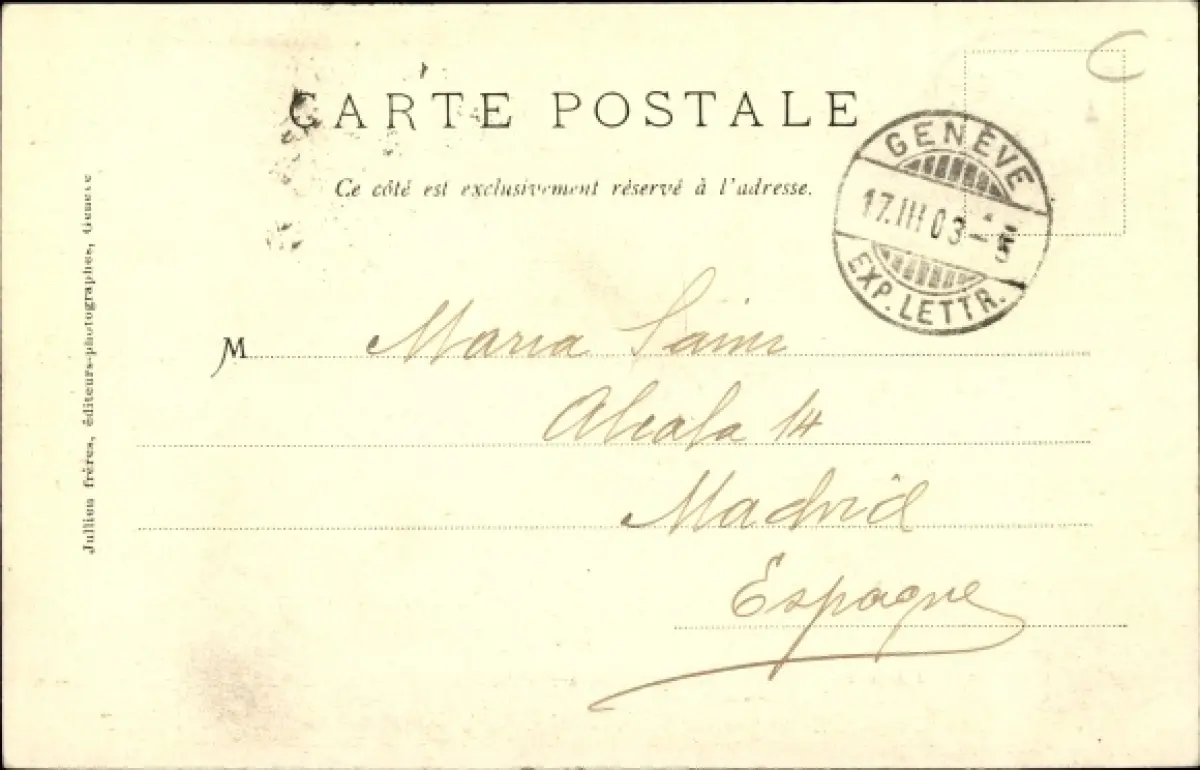 CARTE POSTALE
Ce côté est exclusivement réservé à l'adresse.
GENÈVE
17.III 03 - 5
EXP. LETTR.
M Maria
Alcala 14
Madrid
Espagne
Jullien frères, éditeurs-photographes, Genève